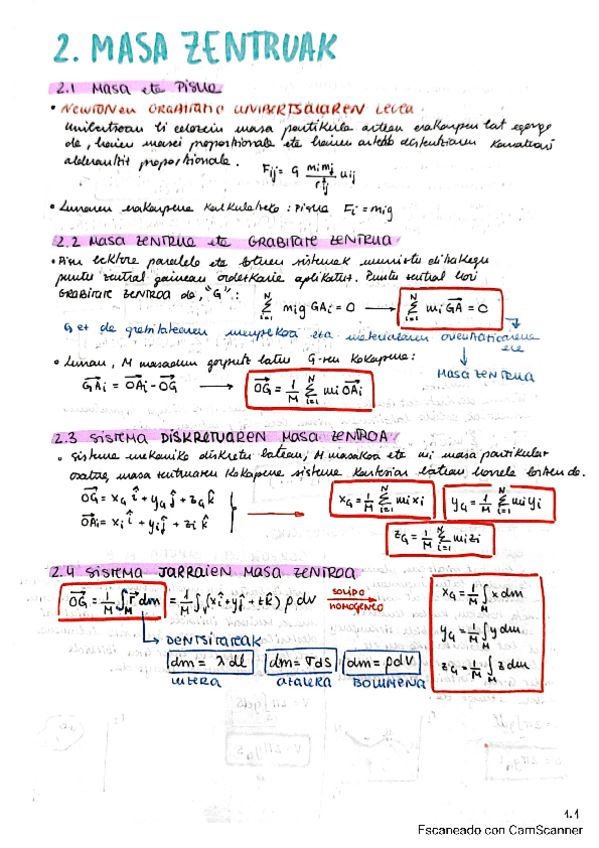 2. MASA ZENTRUAK
2.1 Masa eta Pisua
• NEWTONEN GRABITAZIO UNIBERTSALAREN LEGEA
Unibertsoan bi edozein masa partikula artean erakarpen bat egongo
da, haien masei proportzionala eta haien arteko distantziaren karratuari
alderantziz proportzionala. Fij = G mimj/r²ij uij
• Lurraren erakarpena kalkulatzeko : Pisua Fi = mig
2.2 Masa ZENTRUA eta GRABITATE ZENTRUA
• bektore paralelo eta sistemak
puntu zentral aplikatuz. Puntu zentral hori
GRABITATE ZENTROA da, "G": N Σ i=1 mig GAi = 0 → N Σ i=1 mi GA = 0
G ez da grabitatearen menpekoa eta materialaren orientazioarena
ere
Masa ZENTRUA
• M masadun gorputz G-ren kokapena:
GAi = OAi - OG → OG = 1/M N Σ i=1 mi OAi
2.3 SISTEMA DISKRETUAREN MASA ZENTROA
• Sistema mekaniko diskretu batean, M masakoa eta mi masa partikular
osatua, masa zentruaren kokapena sistema kartesiar batean honela
OG = xG i + yG j + zG k
OAi = xi i + yi j + zi k
xG = 1/M N Σ i=1 mixi
yG = 1/M N Σ i=1 miyi
zG = 1/M Σ i=1 mizi
2.4 SISTEMA JARRAIEN MASA ZENTROA
OG = 1/M ∫M r dm = 1/M ∫V (xi + yj + zk) ρ dV SOLIDO HOMOGENEO
xG = 1/M ∫M x dm
yG = 1/M ∫M y dm
zG = 1/M ∫M z dm
DENTSITATEAK
dm = λ dl dm = σ dS dm = ρ dV
LUZERA AZALERA BOLUMENA
1.1
Escaneado con CamScanner